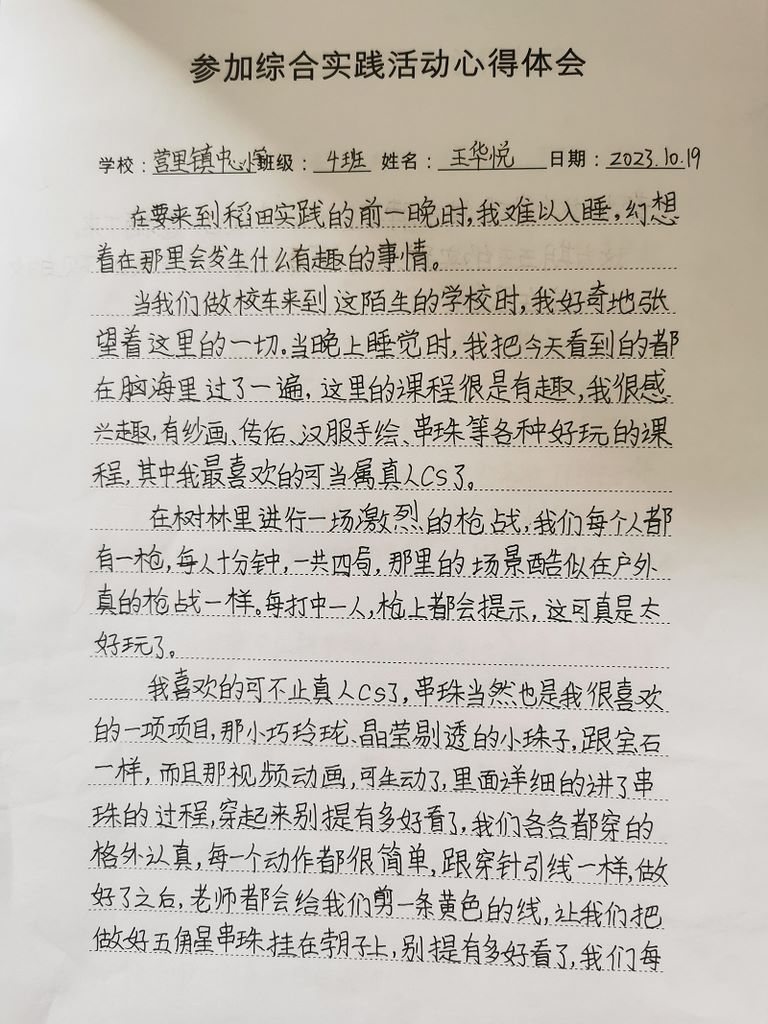 参加综合实践活动心得体会
学校：营里镇中心小学班级：4班 姓名：王华悦 日期：2023.10.19
在要来到稻田实践的前一晚时,我难以入睡,幻想
着在那里会发生什么有趣的事情。
当我们做校车来到这陌生的学校时,我好奇地张
望着这里的一切。当晚上睡觉时,我把今天看到的都
在脑海里过了一遍,这里的课程很是有趣,我很感
兴趣,有纱画、传佑、汉服手绘、串珠等各种好玩的课
程,其中我最喜欢的可当属真人CS了。
在树林里进行一场激烈的枪战,我们每个人都
有一枪,每人十分钟,一共四局,那里的场景酷似在户外
真的枪战一样。每打中一人,枪上都会提示,这可真是太
好玩了。
我喜欢的可不止真人CS了,串珠当然也是我很喜欢
的一项项目,那小巧玲珑、晶莹剔透的小珠子,跟宝石
一样,而且那视频动画,可生动了,里面详细的讲了串
珠的过程,穿起来别提有多好看了,我们各各都穿的
格外认真,每一个动作都很简单,跟穿针引线一样,做
好了之后,老师都会给我们剪一条黄色的线,让我们把
做好五角星串珠挂在脖子上,别提有多好看了,我们每